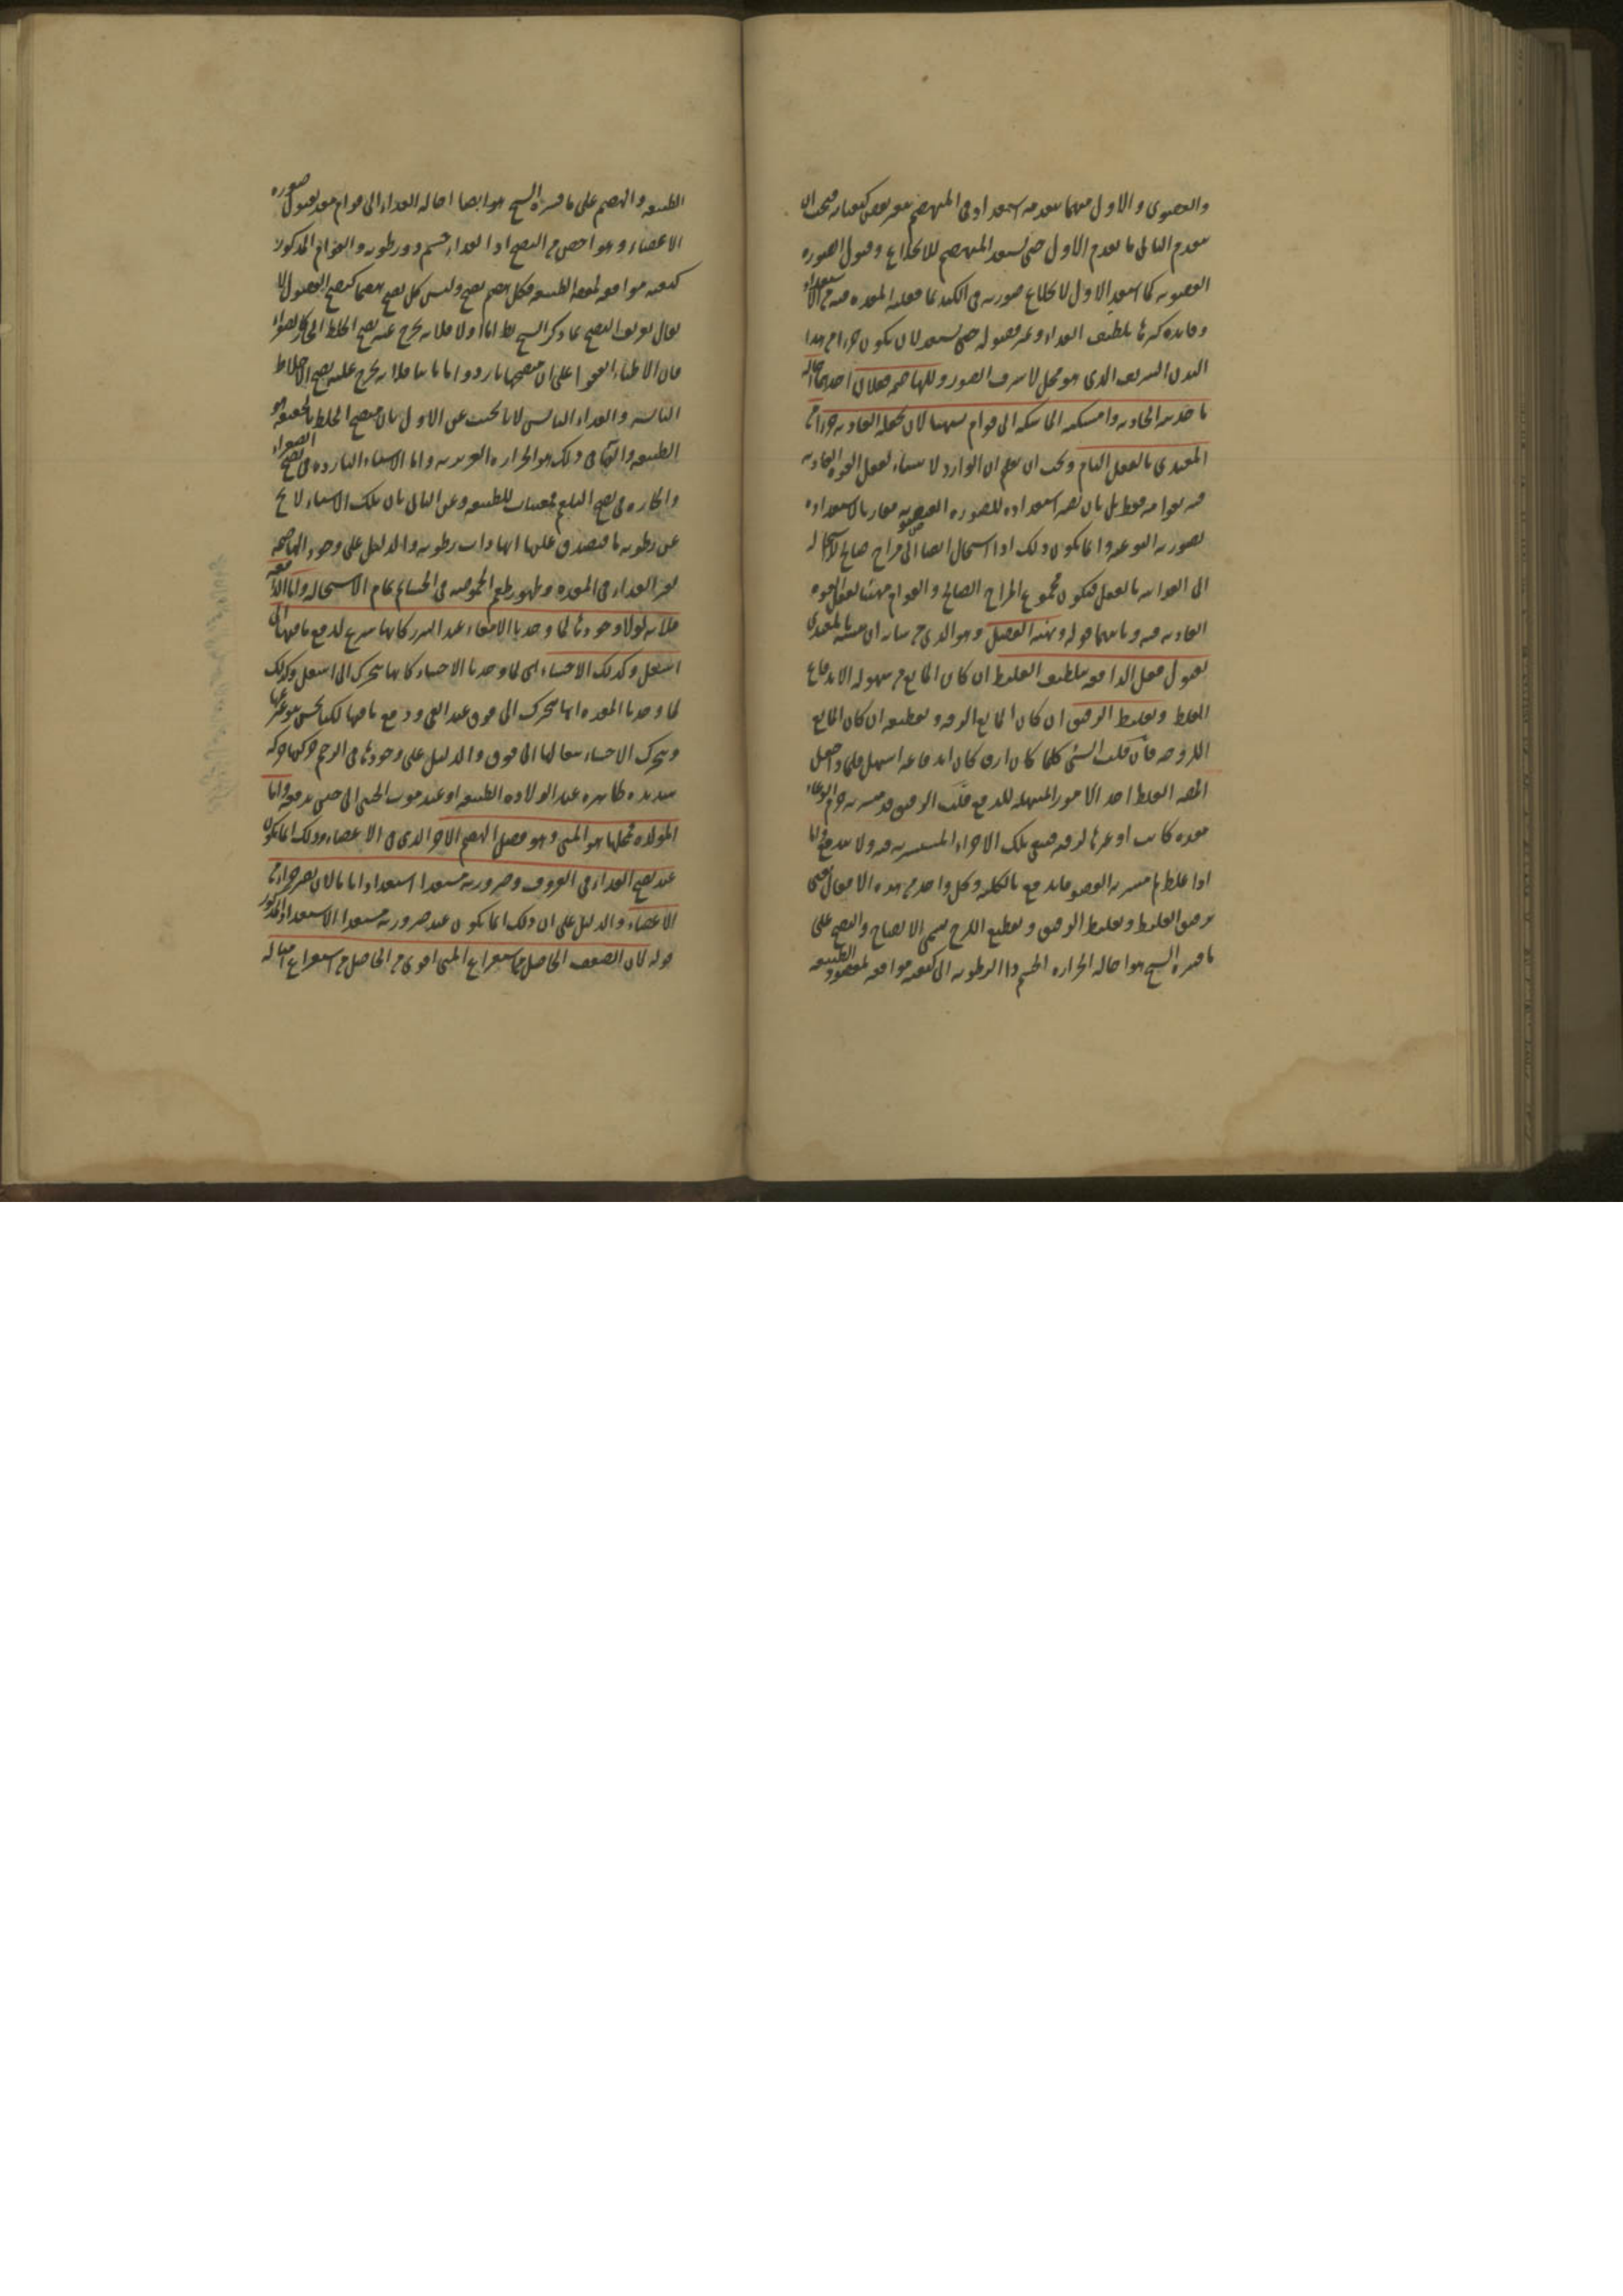 والعضوى والاول منهما بعد فيه استعداد فى المنهضم بتغير بعض كيفياته فيجب ان
يعدم الثانى ما يعدم الاول حتى يستعد المنهضم للانخلاع وقبول الصوره
العضويه كما استعد الاول لانخلاع صورته فى الكبد بما فعلته المعده فيه من الاستعداد
وفايده كثرتها تلطيف الغذاء وتميز فضوله حتى يستعد لان يكون جزءا من هذا
البدن الشريف الذى هو محل لاشرف الصور وللهاضمه فعلان احدهما احاله
ما جذبته الجاذبه وامسكته الماسكه الى قوام مهيا لان تجعله الغاذيه جزءا من
المغتذى بالفعل التام ويجب ان يعلم ان الوارد لا يتهيأ لفعل القوه الغاذيه
فيه بقوامه فقط بل بان يصير استعداده للصوره العضويه مقاربا لاستعداده
لصورته النوعيه وانما يكون ذلك اذا استحال ايضا الى مزاج صالح للاستحاله
الى الغذائيه بالفعل فيكون مجموع المزاج الصالح والقوام مهيئا لفعل القوه
الغاذيه فيه وثانيهما قوله وتهيئه الفضل وهو الذى من شانه ان يتشبه بالمغتذى
لقبول فعل الدافعه بتلطيف الغليظ ان كان المانع من سهوله الاندفاع
الغلظ وتغليظ الرقيق ان كان المانع الرقه وتقطيعه ان كان المانع
اللزوجه فان قلت الشى كلما كان ارق كان اندفاعه اسهل فلماذا جعل
الغلظ احد الامور المسهله للدفع قلت الرقيق قد يتشربه جرم الوعاء
معده كانت او غيرها لرقته فتبقى تلك الاجزاء المتشربه فيه ولا تندفع واما
اذا غلظ لم يتشربه العضو فاندفع بالكليه وكل واحد من هذه الافعال اعنى
ترقيق الغليظ وتغليظ الرقيق وتقطيع اللزج يسمى الانضاج والنضج على
ما فسره الشيخ هو احاله الحراره الجسم ذا الرطوبه الى كيفيه موافقه لمقصود الطبيعه
الطبيعه والهضم على ما فسره الشيخ هو ايضا احاله الغذاء الى قوام معد لقبول صوره
الاعضاء وهو اخص من النضج اذ الغذاء جسم ذو رطوبه والقوام المذكور
كيفيه موافقه لمقصد الطبيعه فكل هضم نضج وليس كل نضج هضما كنضج الفضول لا
يقال تعريف النضج بما ذكر الشيخ باطل اما اولا فلانه يخرج عنه نضج الخلط الحار كالصفراء
فان الاطباء اتفقوا على ان منضجها بارد واما ثانيا فلانه يخرج عنه نضج الاخلاط
اليابسه والغذاء اليابس لانا نجيب عن الاول بان منضج الخلط بالحقيقه هو
الطبيعه والتها فى ذلك هو الحراره الغريزيه واما الاشياء البارده فى نضج الصفراء
والحاره فى نضج البلغم فمعينات للطبيعه وعن الثانى بان تلك الاشياء لا تخ
عن رطوبه ما فيصدق عليها انها ذات رطوبه والدليل على وجود الهاضمه
تغير الغذاء فى المعده وظهور طعم الحموضه فى الجشاء ثم تمام الاستحاله واما الدافعه
فلانه لولا وجودها لما وجدنا الامعاء عند التبرز كانها تنتزع لدفع ما فيها الى
اسفل وكذلك الاحشاء اى لما وجدنا الاحشاء كانها تتحرك الى اسفل وكذلك
لما وجدنا المعده انها تتحرك الى فوق عند القى ودفع ما فيها لكنا نحس بتوعرها
وتتحرك الاحشاء تبعا لها الى فوق والدليل على وجودها فى الرحم حركتها حركه
شديده ظاهره عند الولاده الطبيعيه او عند موت الجنين الى حين تدفعه واما
المولده فمحلها هو المنى وهو فضل الهضم الاخر الذى فى الاعضاء وذلك انما يكون
عند نضج الغذاء فى العروق وصيرورته مستعدا استعدادا تاما لان يصير جزءا من
الاعضاء والدليل على ان ذلك انما يكون عند صيرورته مستعدا الاستعداد المذكور
قوله لان الضعف الحاصل من استفراغ المنى اقوى من الحاصل من استفراغ امثاله